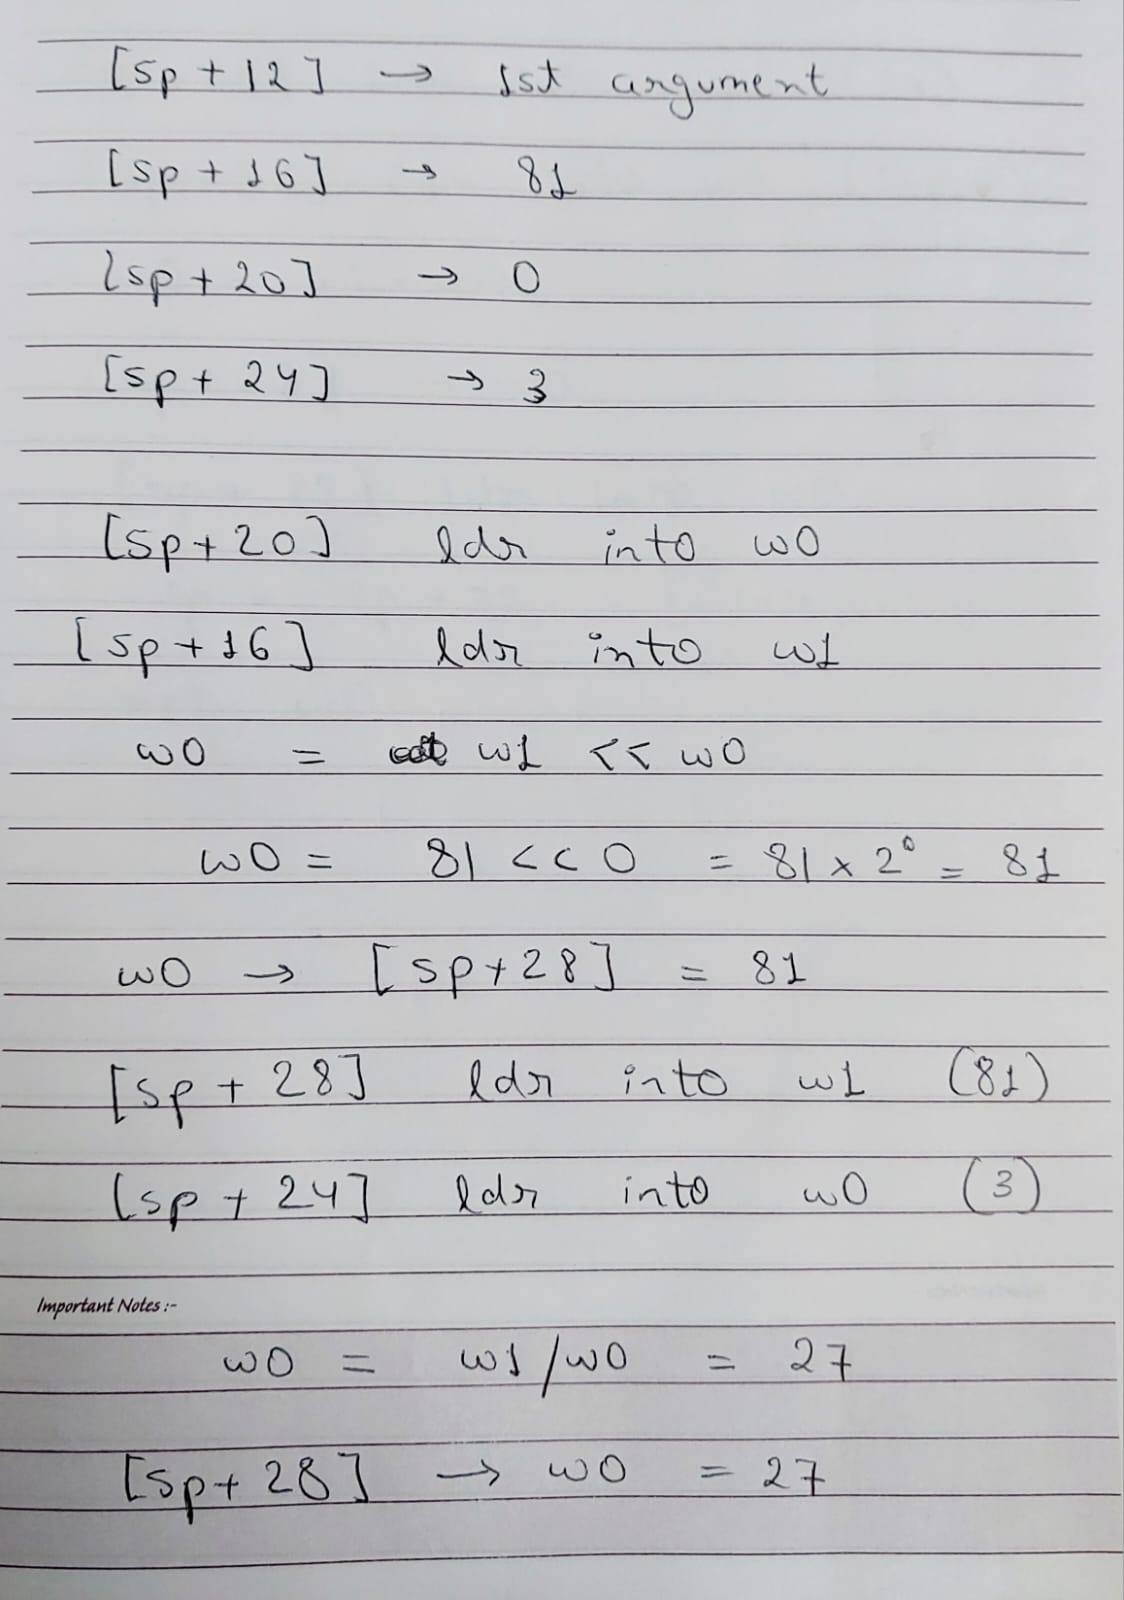 [sp + 12] → 1st argument
[sp + 16] → 81
[sp + 20] → 0
[sp + 24] → 3
[sp + 20] ldr into w0
[sp + 16] ldr into w1
w0 = w1 << w0
w0 = 81 << 0 = 81 x 2⁰ = 81
w0 → [sp + 28] = 81
[sp + 28] ldr into w1 (81)
[sp + 24] ldr into w0 (3)
Important Notes :-
w0 = w1/w0 = 27
[sp + 28] → w0 = 27